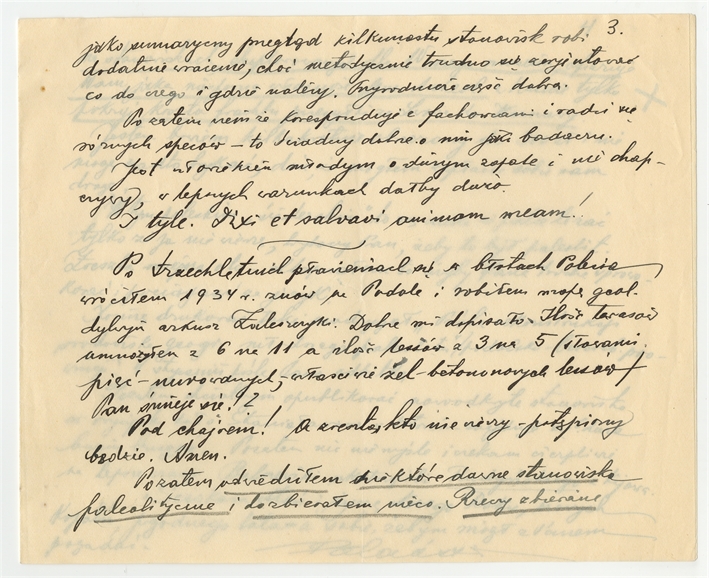 3.
jako sumaryczny przegląd kilkunastu stanowisk robi
dodatnie wrażenie, choć metodycznie trudno się zorjentować
co do czego i gdzie należy. część dobra.
Pozatem wiem że koresponduje z fachowcami i radzi się
różnych speców – to świadczy dobrze o nim jako badaczu.
Jest człowiekiem młodym o dużym zapale i nie chap-
czywy, w lepszych warunkach dałby dużo.
I tyle. Dixi et salvavi animam meam!
Po trzechletnich pławieniach się w błotach Polesia
wróciłem 1934 r. znów na Podole i robiłem mapę geol-
arkusz Zaleszczyki. Dobrze mi dopisało. Ilość tarasów
umnożyłem z 6 na 11 a ilość lessów z 3 na 5 (słowami
pięć – murowanych, – właściwie żel-betonowych lessów)
Pan śmieje się!?
Pod chajrem! A zresztą kto nie wierzy – potępiony
będzie. Amen.
Pozatem odwiedziłem niektóre dawne stanowiska
paleolityczne i dozbierałem nieco. Rzeczy zbierane